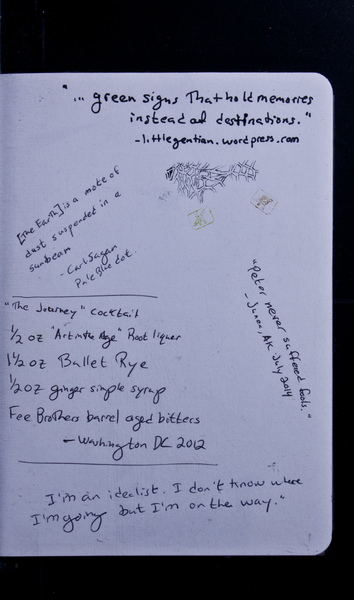 "... green signs That hold memories
instead of destinations."
-littlegentian.wordpress.com
[The Earth] is a mote of
dust suspended in a
sunbeam
- Carl Sagan
Pale Blue Dot.
"Peter never suffered fools."
- Juneau, AK July 2014
"The Journey" cocktail
1/2 oz "Art in the Age" Root liquer
1 1/2 oz Bullet Rye
1/2 oz ginger simple syrup
Fee Brothers barrel aged bitters
- Washington DC 2012
I'm an idealist. I don't know where
I'm going but I'm on the way."